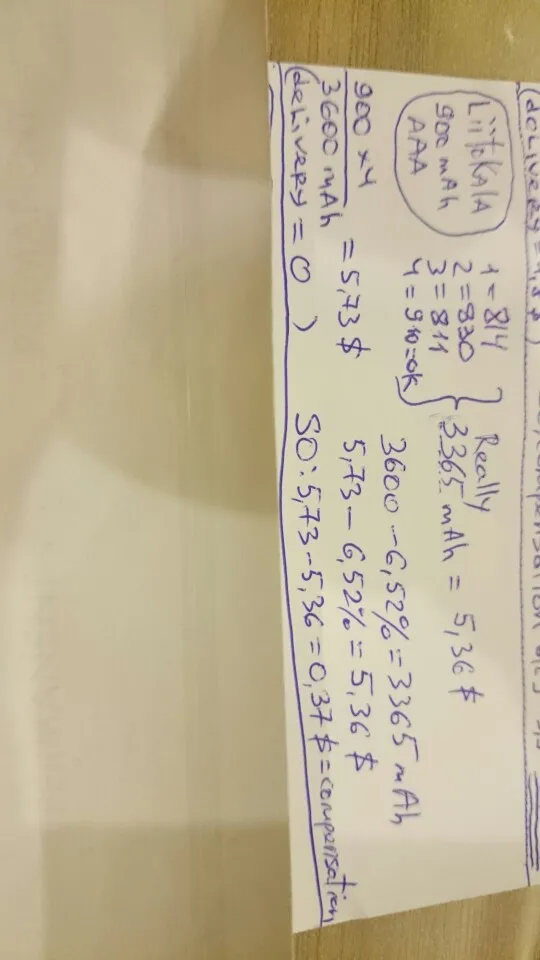 (delivery =
compensation
LiitoKALA
900 mAh
AAA
1 = 814
2 = 830
3 = 811
4 = 910=ok
Really
3365 mAh = 5,36 $
900 x4
3600 mAh = 5,73 $
(delivery = 0 )
3600 - 6,52% = 3365 mAh
5,73 - 6,52% = 5,36 $
SO: 5,73-5,36 = 0,37 $ = compensation